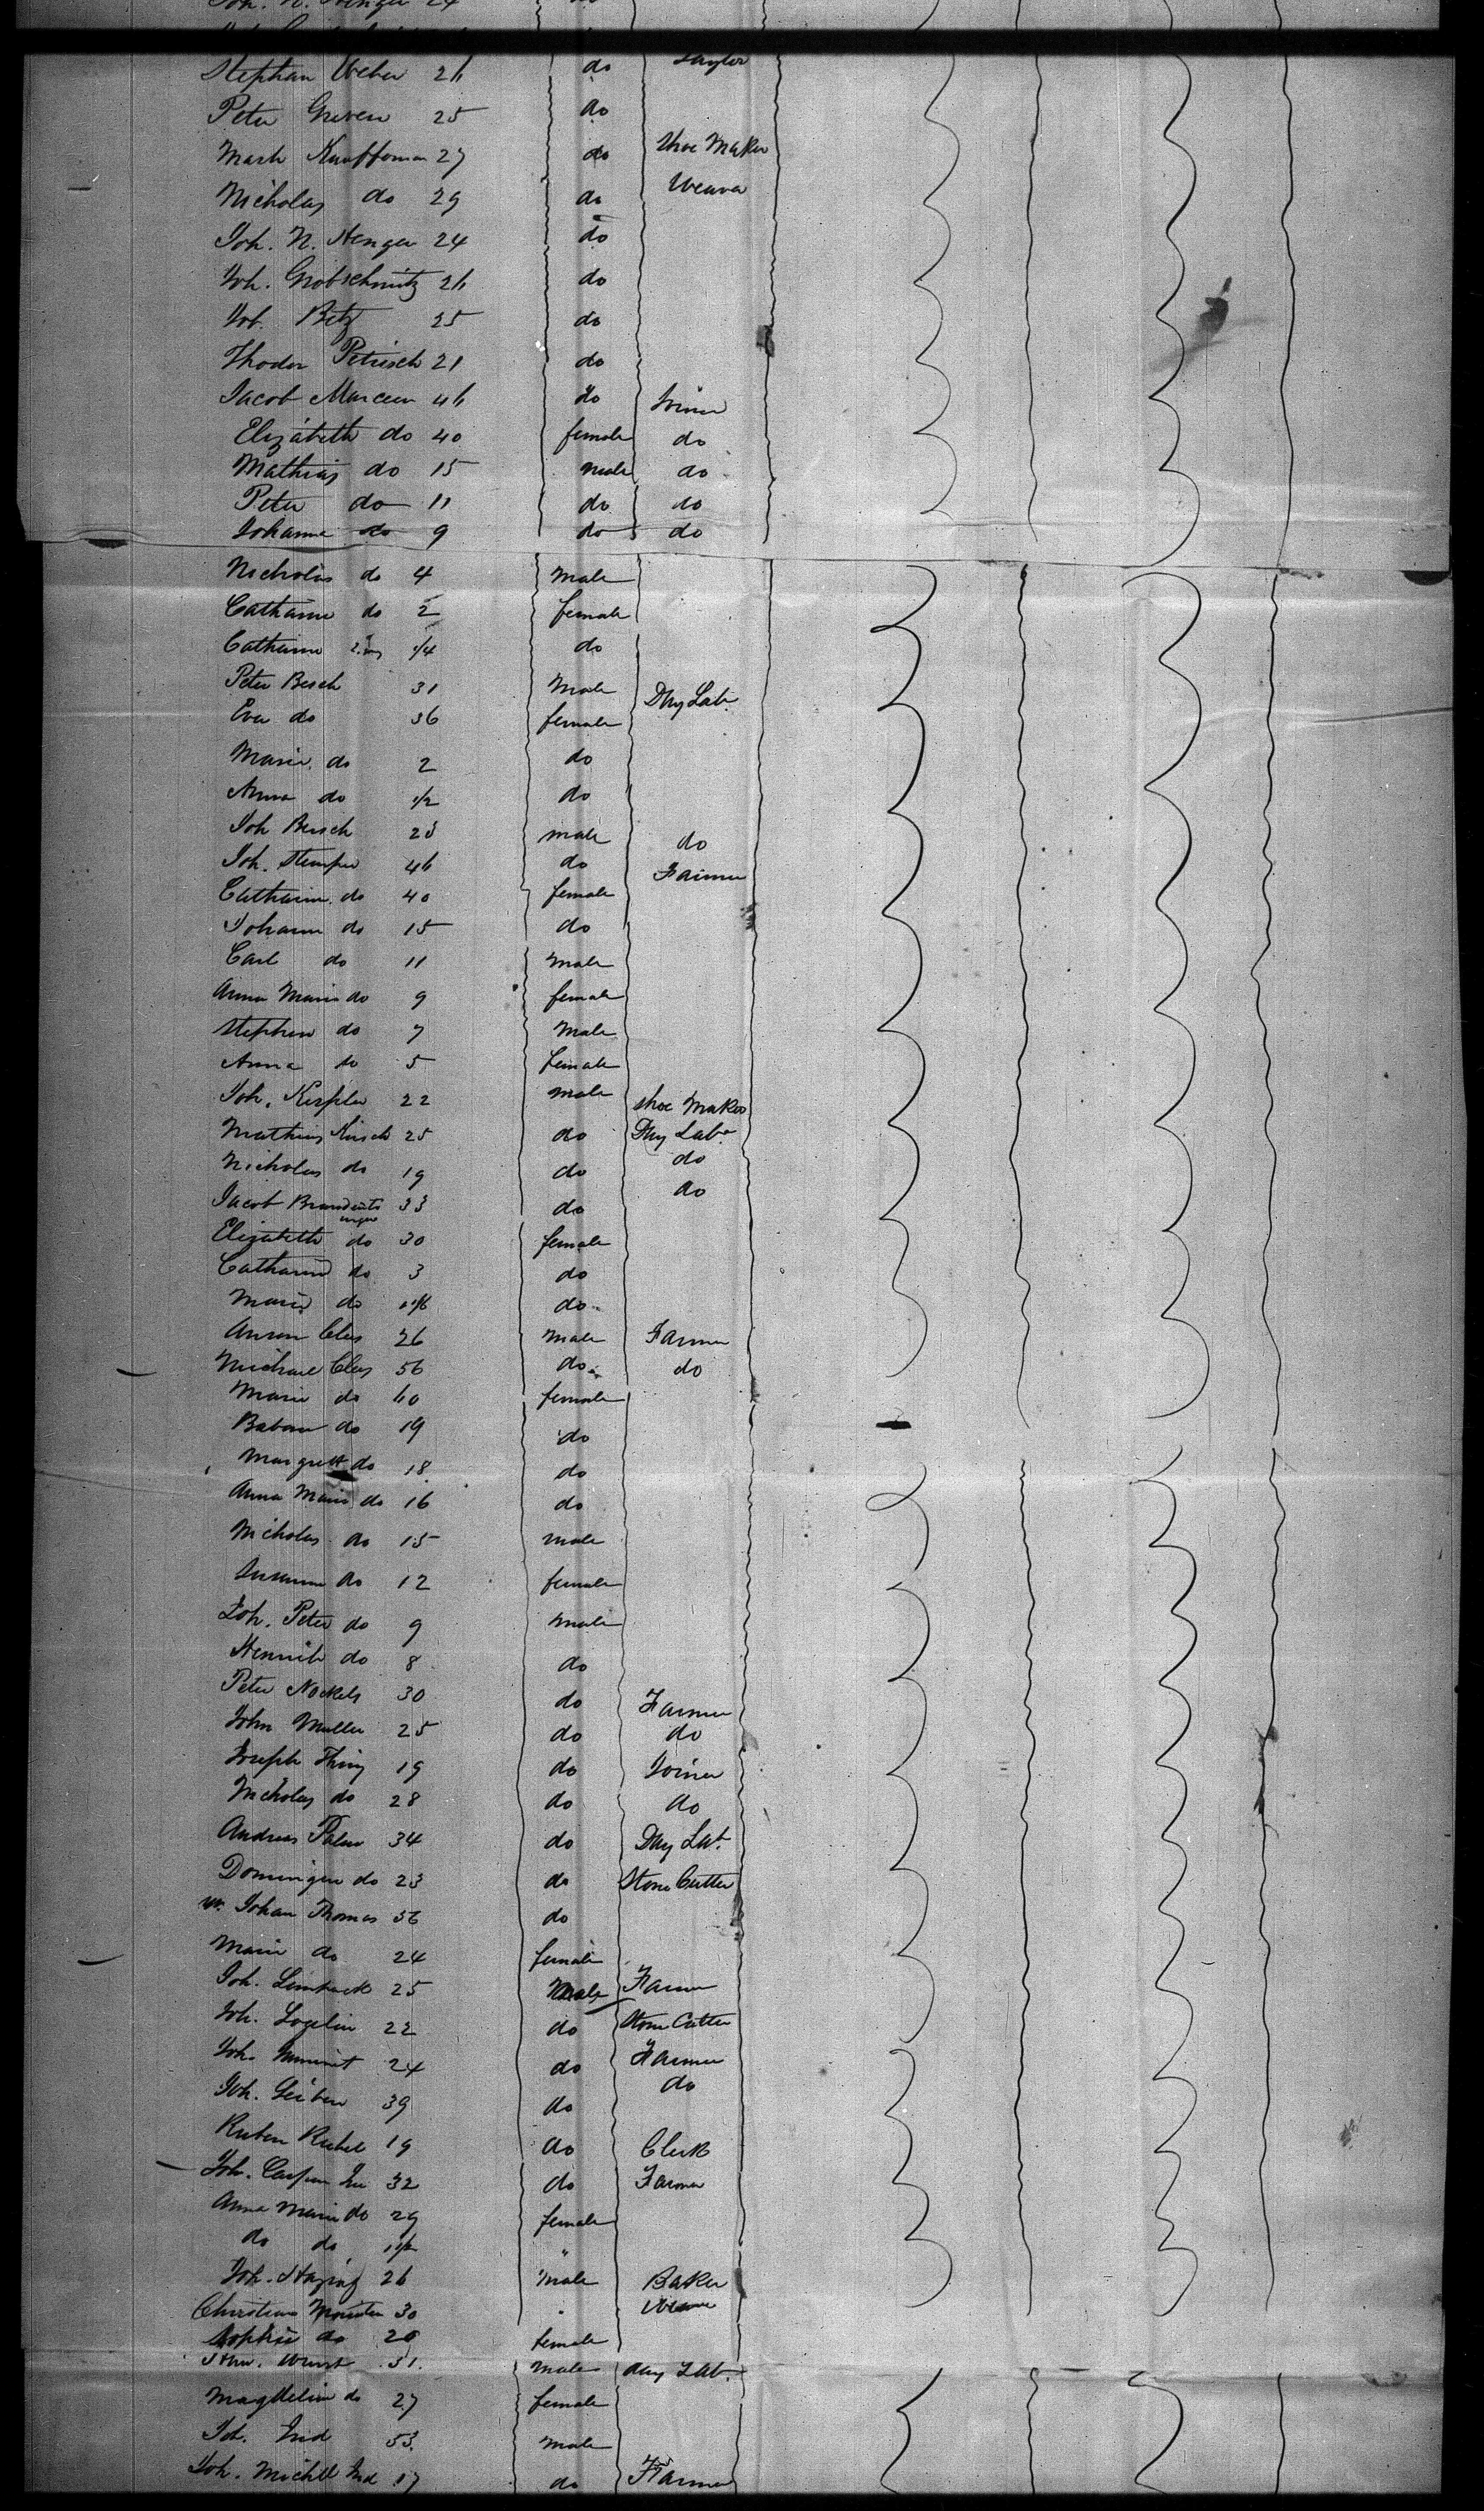 Joh. N. Henger 24 do
Stephan Weber 26 do Taylor
Peter Greven 25 do
Math Kauffman 27 do Shoe Maker
Nicholas do 29 do Weaver
Joh. N. Henger 24 do
Joh. Grobschmitz 26 do
Joh. Betz 25 do
Thodor Petrisch 21 do
Jacob Marceau 46 do Joiner
Elizabeth do 40 female do
Mathias do 15 male do
Peter do 11 do do
Johanna do 9 do do
Nicholas do 4 male
Catharine do 2 female
Catharine 1/4 do
Peter Besch 31 Male Day Lab.
Eva do 36 female
Marie do 2 do
Anna do 1/2 do
Joh Besch 23 male do
Joh. Stemper 46 do Farmer
Catharin. do 40 female
Johann do 15 do
Carl do 11 male
Anna Maria do 9 female
Stephen do 7 Male
Anna do 5 female
Joh. Kespler 22 male Shoe Maker
Mathias Kirsch 25 do Day Labr
Nicholas do 19 do do
Jacob 33 do do
Elizabeth do 30 female
Catharina do 3 do
Maria do do
Cles 26 male Farmer
Michael Cles 56 do do
Marie do 40 female
do 19 do
Margrett do 18 do
Anna Maria do 16 do
Nicholas do 15 male
Susanna do 12 female
Joh. Peter do 9 male
Heinrich do 8 do
Peter Nockels 30 do Farmer
John Muller 25 do do
Joseph Thiny 19 do Joiner
Nicholas do 28 do do
Andreas Palen 34 do Day Lab.
Dominique do 23 do Stone Cutter
Johan Thomas 56 do
Marie do 24 female
Joh. 25 Male Farmer
Joh. Logelin 22 do Stone Cutter
Joh. 24 do Farmer
Joh. Leiben 39 do do
Ruben Richel 19 do Clerk
Joh. 32 do Farmer
Anna Maria do 29 female
do do "
Joh. 26 male Baker
Christian 30 Weaver
Sophie do 20 female
Wurst 31. male day Lab.
Magdelina do 27 female
Joh. Ind 53. male
Joh. Michel Ind 17 do Farmer